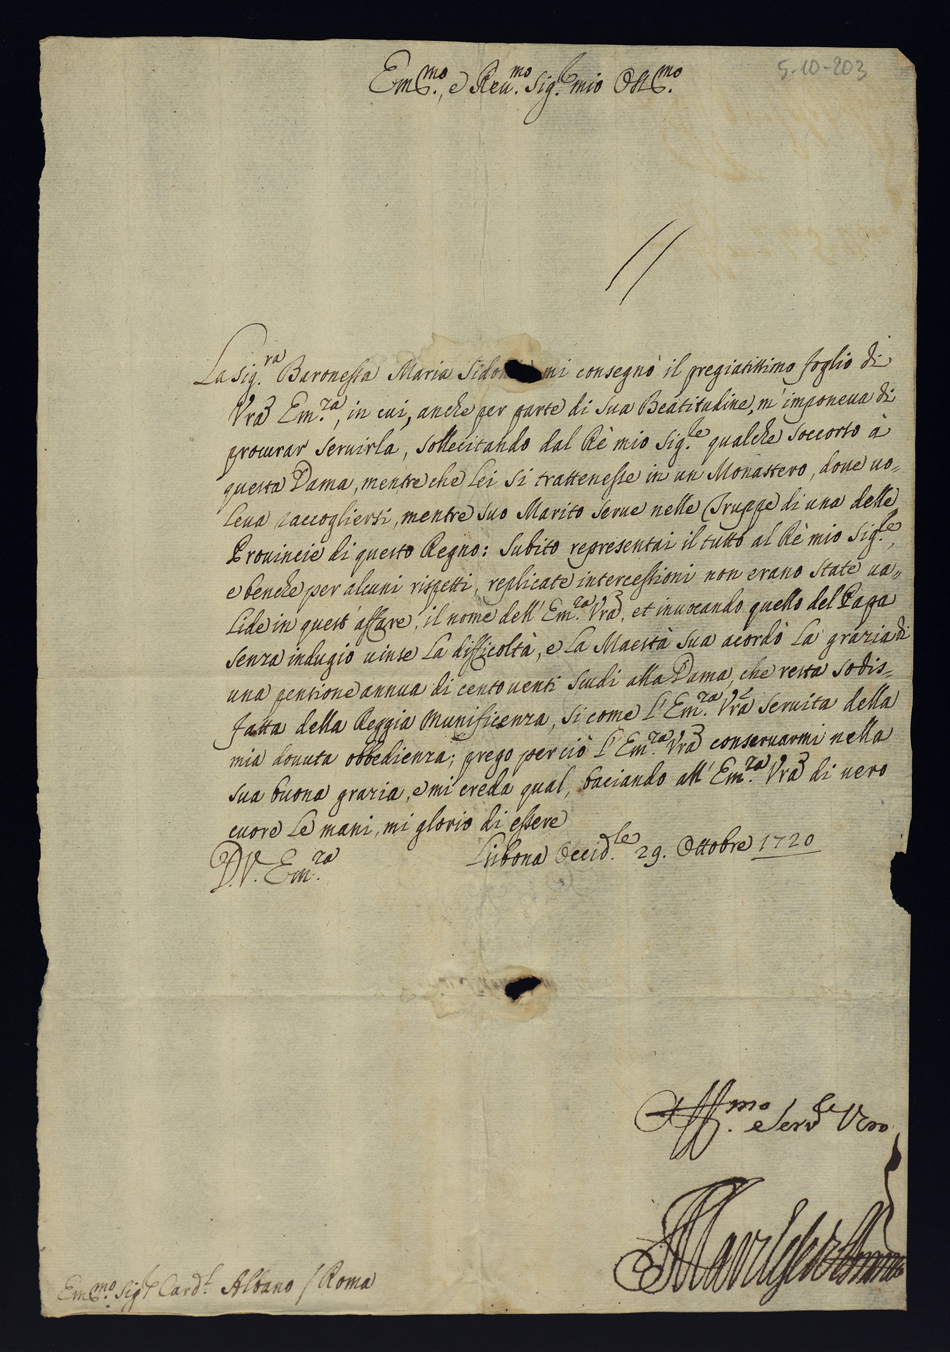 5-10-203
Em.mo, e Reu.mo Sig.re mio Oss.mo
La Sig.ra Baronessa Maria mi consegnò il pregiatissimo foglio di
Vra Em.za, in cui, anche per parte di Sua Beatitudine, m'imponeva di
procurar seruirla, sollecitando dal Rè mio Sig.re qualche soccorso à
questa Dama, mentre che lei si trattenesse in un Monastero, doue uo-
leua raccogliersi, mentre suo Marito serue nelle Truppe di una delle
Prouincie di questo Regno: Subito representai il tutto al Rè mio Sig.re,
e benche per alcuni rispetti, replicate intercessioni non erano state ua-
lide in quest'affare, il nome dell'Em.za Vra, et inuocando quello del Papa
senza indugio uinse la difficoltà, e la Maestà Sua acordò la grazia di
una pensione annua di cento uenti scudi alla Dama, che resta sodis-
fatta della Reggia Munificenza, si come l'Em.za Vra seruita della
mia douuta obbedienza; prego perciò l'Em.za Vra conseruarmi nella
sua buona grazia, e mi creda qual, baciando all'Em.za Vra di uero
cuore le mani, mi glorio di essere
D. V. Em.za
Lisbona Occid.le 29. Ottobre 1720
Aff.mo e Seru.re Vero
Em.mo Sig.r Card.l Albano / Roma